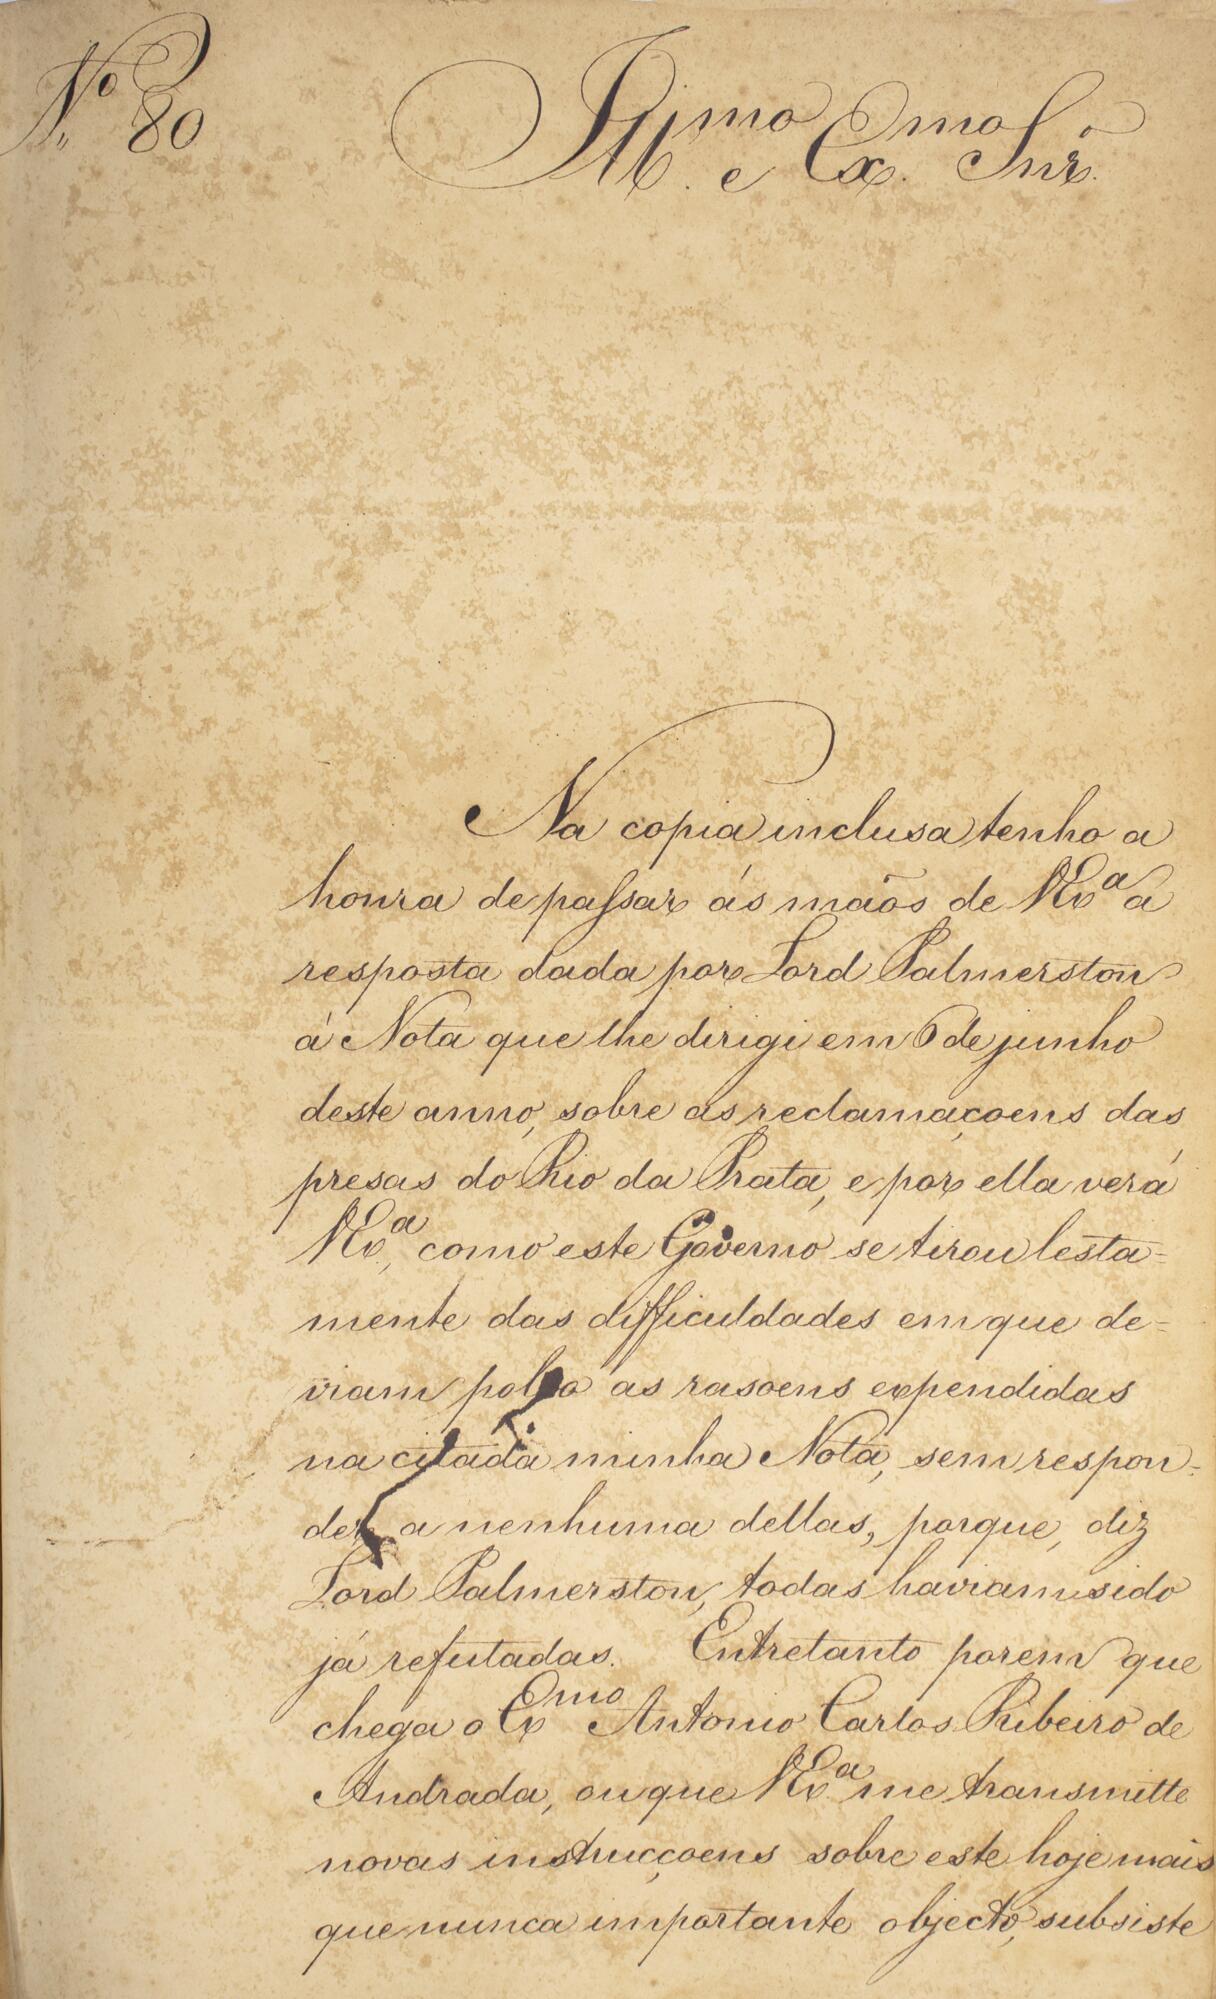 Nº 80
Ill.mo e Ex.mo Snr.º
Na copia inclusa tenho a
honra de passar ás mãos de VExª a
resposta dada por Lord Palmerston
á Nota que lhe dirigi em 6 de junho
deste anno, sobre as reclamaçoens das
presas do Rio da Prata, e por ella verá
VExª, como este Governo se tirou lesta-
mente das difficuldades em que de-
viam pol-o as rasoens expendidas
na citada minha Nota, sem respon-
der a nenhuma dellas, porque, diz
Lord Palmerston, todas haviam sido
já refutadas. Entretanto porem que
chega o Exmo Antonio Carlos Ribeiro de
Andrada, ou que VExª me transmitte
novas instrucçoens sobre este hoje mais
que nunca importante objecto, subsiste